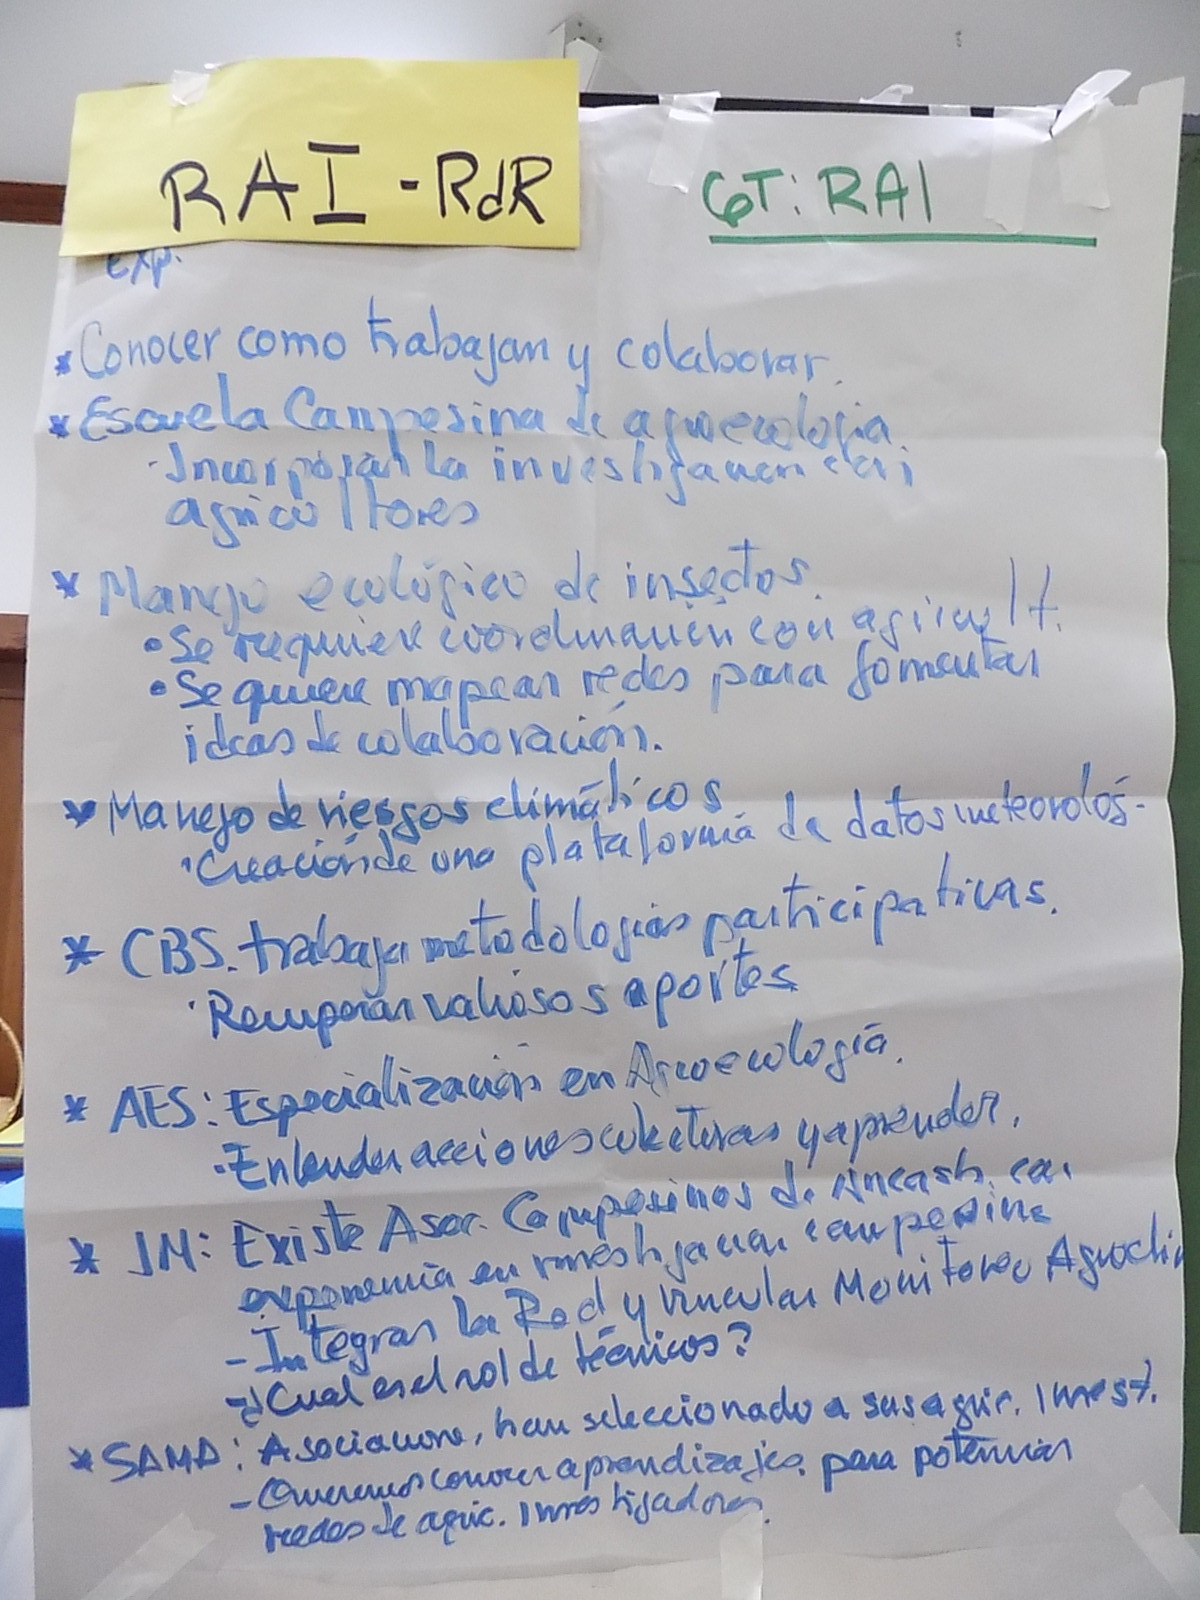 RAI - RdR
GT: RAI
Exp.
* Conocer como trabajan y colaborar.
* Escuela Campesina de agroecologia.
· Incorporar la investigacion con
agricultores
* Manejo ecológico de insectos.
• Se requiere coordinación con agricult.
• Se quiere mapear redes para fomentar
ideas de colaboración.
* Manejo de riesgos climáticos
· Creación de una plataforma de datos meteorológ-
* CBS. trabaja metodologias participativas.
· Recuperar valiosos aportes
* AES: Especialización en Agroecología.
· Entender acciones colectivas y aprender.
* JM: Existe Asoc. Campesinos de Ancash con
experiencia en investigacion campesina
- Integrar la Red y vincular Monitoreo Agrocli
- ¿Cual es el rol de técnicos?
* SAMA: Asociacione, han seleccionado a sus agric. Invest.
- Queremos conocer aprendizajes. para potenciar
redes de agric. Investigadores.